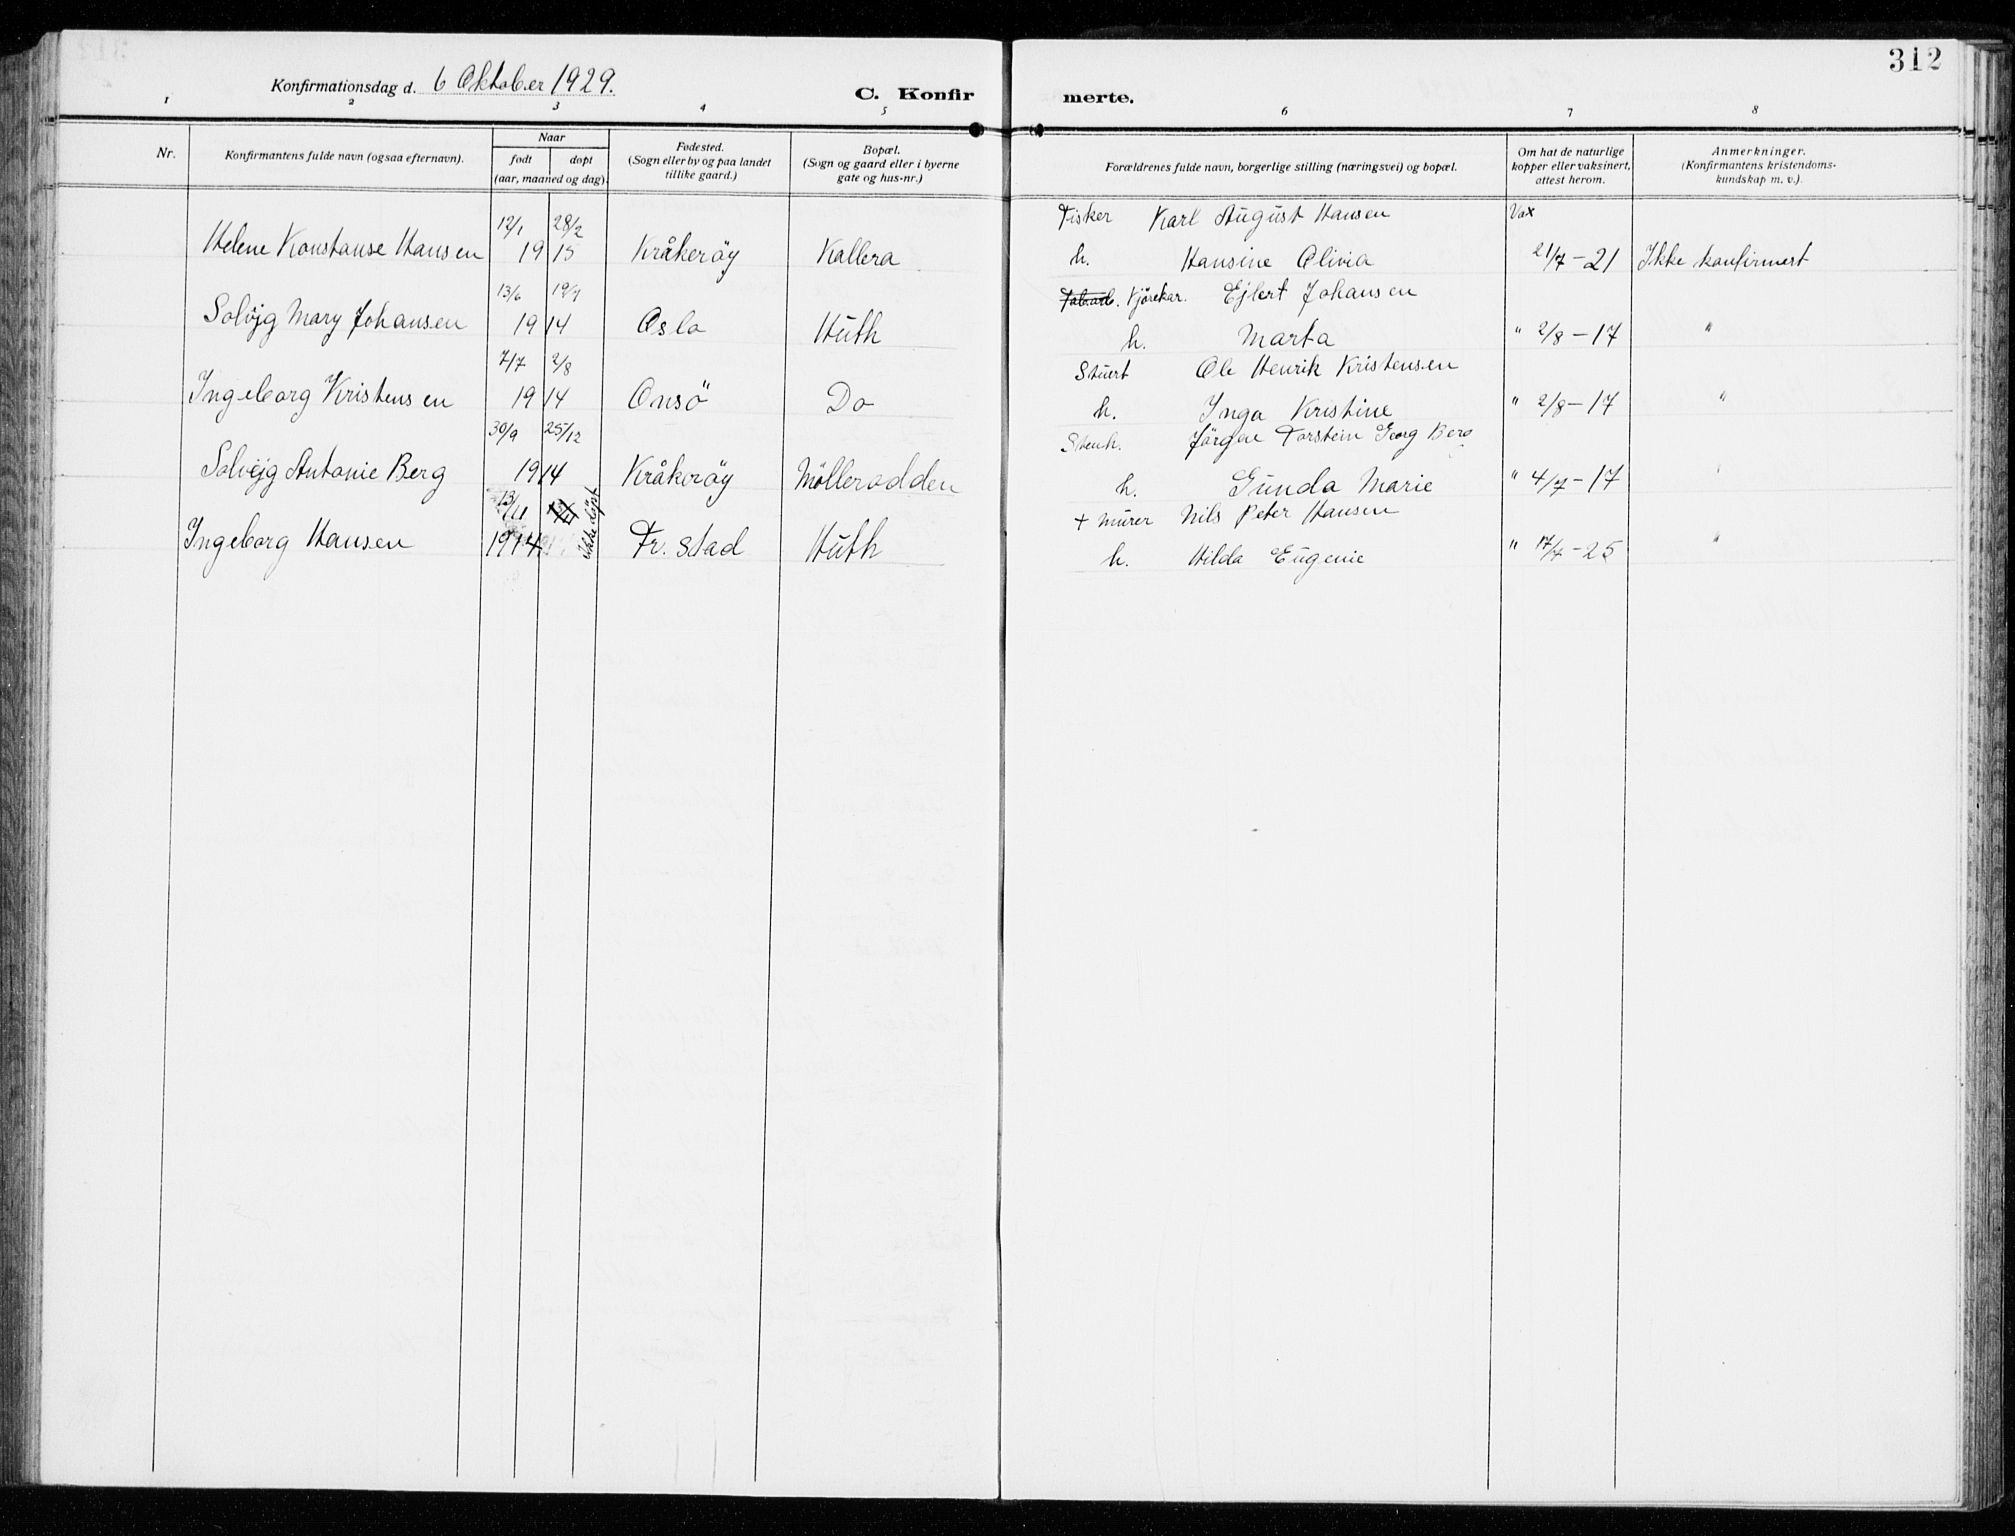 312
Konfirmationsdag d. 6 Oktober 1929.
C. Konfir merte.
1 2 3 4 5 6 7 8
Nr.
Konfirmantens fulde navn (ogsaa efternavn).
Naar
født døpt
(aar, maaned og dag).
Fødested.
(Sogn eller by og paa landet
tillike gaard.)
Bopæl.
(Sogn og gaard eller i byerne
gate og hus-nr.)
Forældrenes fulde navn, borgerlige stilling (næringsvei) og bopæl.
Om hat de naturlige
kopper eller vaksinert,
attest herom.
Anmerkninger.
(Konfirmantens kristendoms-
kundskap m. v.).
12/1 28/2 Fisker Karl August Hansen Vax
Helene Konstanse Hansen 19 15 Kråkeröy Kallera h. Hansine Olivia 21/7 - 21 Ikke konfirmert
13/6 19/7 Kjörekar. Ejlert Johansen
Solvjg Mary Johansen 19 14 Oslo Huth h. Marta " 2/8 - 17 "
7/7 2/8 Stuert Ole Henrik Kristensen
Ingeborg Kristensen 19 14 Onsö Do h. Inga Kristine " 2/8 - 17 "
30/9 25/12 Stenh. Jörgen Torstein Georg Berg
Solvejg Antonie Berg 19 14 Kråkeröy Möllerodden h. Gunda Marie " 4/7 - 17 "
13/11 Ikke döpt + Murer Nils Peter Hansen
Ingeborg Hansen 1914 Fr. stad Huth h. Hilda Eugenie " 17/7 - 25 "